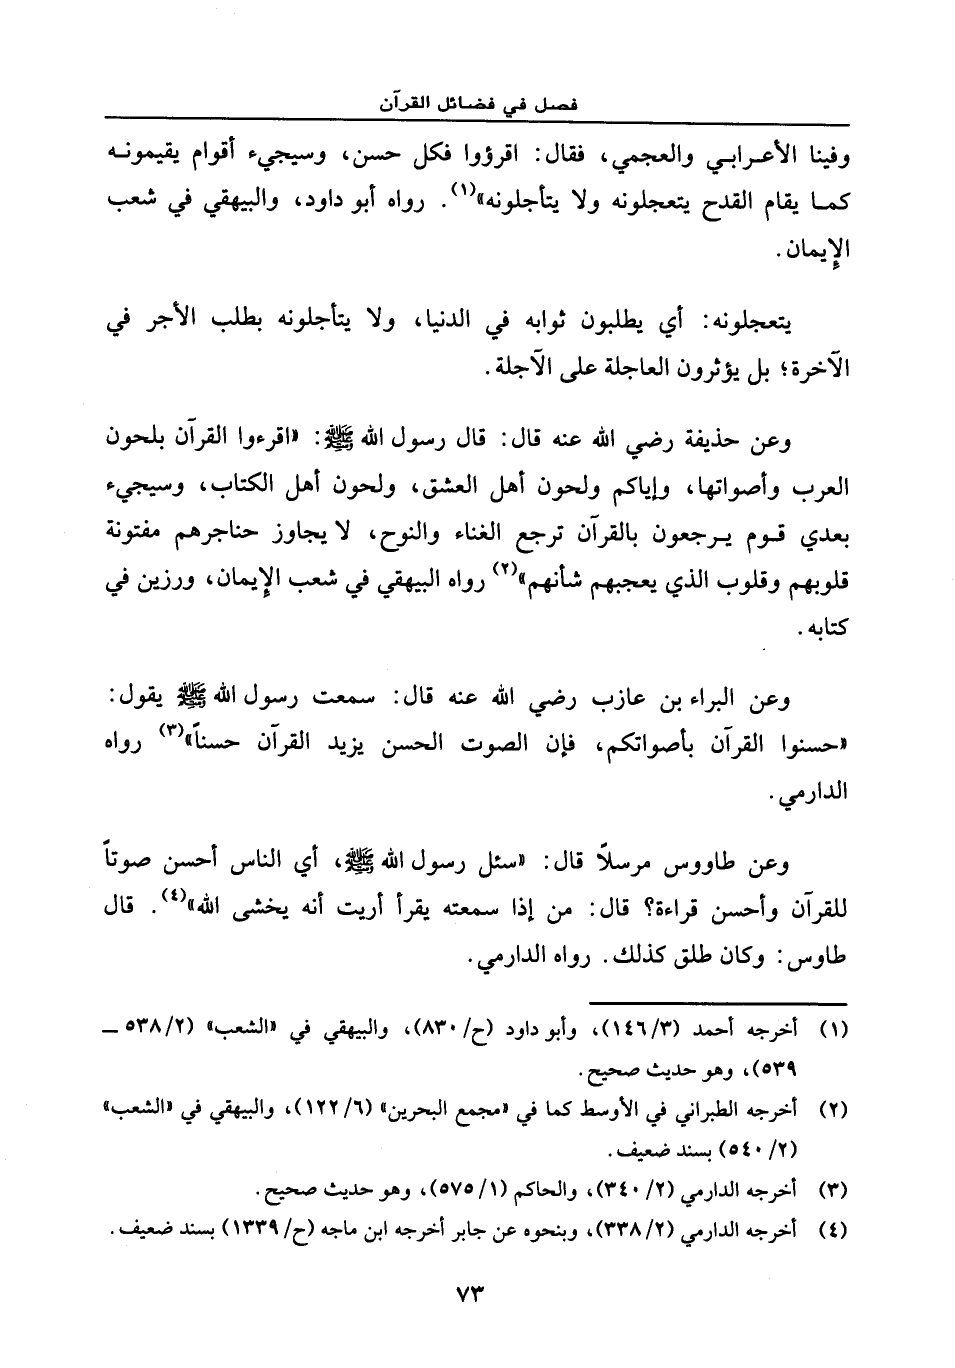 فصل في فضائل القرآن
وفينا الأعرابي والعجمي، فقال: اقرؤوا فكل حسن، وسيجيء أقوام يقيمونه
كما يقام القدح يتعجلونه ولا يتأجلونه»(١). رواه أبو داود، والبيهقي في شعب
الإيمان.
يتعجلونه: أي يطلبون ثوابه في الدنيا، ولا يتأجلونه بطلب الأجر في
الآخرة؛ بل يؤثرون العاجلة على الآجلة.
وعن حذيفة رضي الله عنه قال: قال رسول الله ﷺ: «اقرءوا القرآن بلحون
العرب وأصواتها، وإياكم ولحون أهل العشق، ولحون أهل الكتاب، وسيجيء
بعدي قوم يرجعون بالقرآن ترجع الغناء والنوح، لا يجاوز حناجرهم مفتونة
قلوبهم وقلوب الذي يعجبهم شأنهم»(٢) رواه البيهقي في شعب الإيمان، ورزين في
كتابه.
وعن البراء بن عازب رضي الله عنه قال: سمعت رسول الله ﷺ يقول:
«حسنوا القرآن بأصواتكم، فإن الصوت الحسن يزيد القرآن حسناً»(٣) رواه
الدارمي.
وعن طاووس مرسلاً قال: «سئل رسول الله ﷺ، أي الناس أحسن صوتاً
للقرآن وأحسن قراءة؟ قال: من إذا سمعته يقرأ أريت أنه يخشى الله»(٤). قال
طاوس: وكان طلق كذلك. رواه الدارمي.
(١) أخرجه أحمد (٣/١٤٦)، وأبو داود (ح/٨٣٠)، والبيهقي في «الشعب» (٢/٥٣٨ ــ
٥٣٩)، وهو حديث صحيح.
(٢) أخرجه الطبراني في الأوسط كما في «مجمع البحرين» (٦/١٢٢)، والبيهقي في «الشعب»
(٢/٥٤٠) بسند ضعيف.
(٣) أخرجه الدارمي (٢/٣٤٠)، والحاكم (١/٥٧٥)، وهو حديث صحيح.
(٤) أخرجه الدارمي (٢/٣٣٨)، وبنحوه عن جابر أخرجه ابن ماجه (ح/١٣٣٩) بسند ضعيف.
٧٣